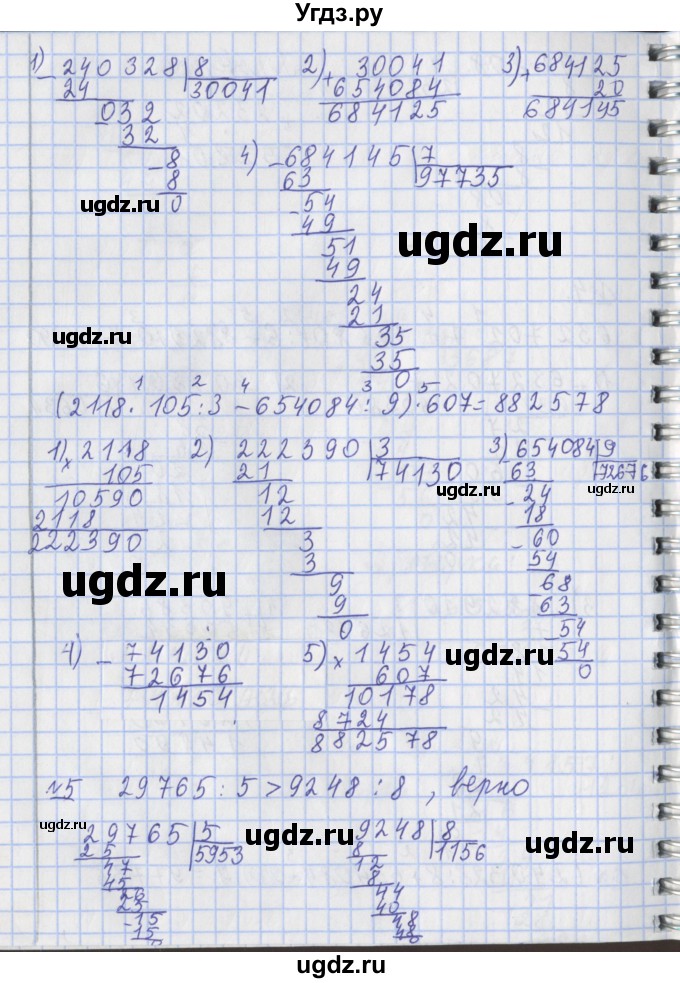 Угдз.ру
1) - 240328 | 8
24 30041
032
32
- 8
8
0
2) + 30041
654084
684125
3) + 684125
20
684145
4) - 684145 | 7
63 97735
- 54
49
51
49
24
21
35
35
0
ugdz.ru
ugdz.ru
ugdz.ru
1 2 4 3 5
(2118 · 105 : 3 - 654084 : 9) · 607 = 882578
1) x 2118
105
10590
2118
222390
2) 222390 | 3
21 74130
12
12
3
3
9
9
0
3) 654084 | 9
63 72676
- 24
18
- 60
54
68
63
- 54
54
0
ugdz.ru
ugdz.ru
ugdz.ru
4) - 74130
72676
1454
5) x 1454
607
10178
8724
882578
ugdz.ru
№5 29765 : 5 > 9248 : 8 , верно
- 29765 | 5
25 5953
47
45
26
25
- 15
15
0
9248 | 8
8 1156
12
8
44
40
48
48
0
ugdz.ru
ugdz.ru
ugdz.ru
ugdz.ru
ugdz.ru